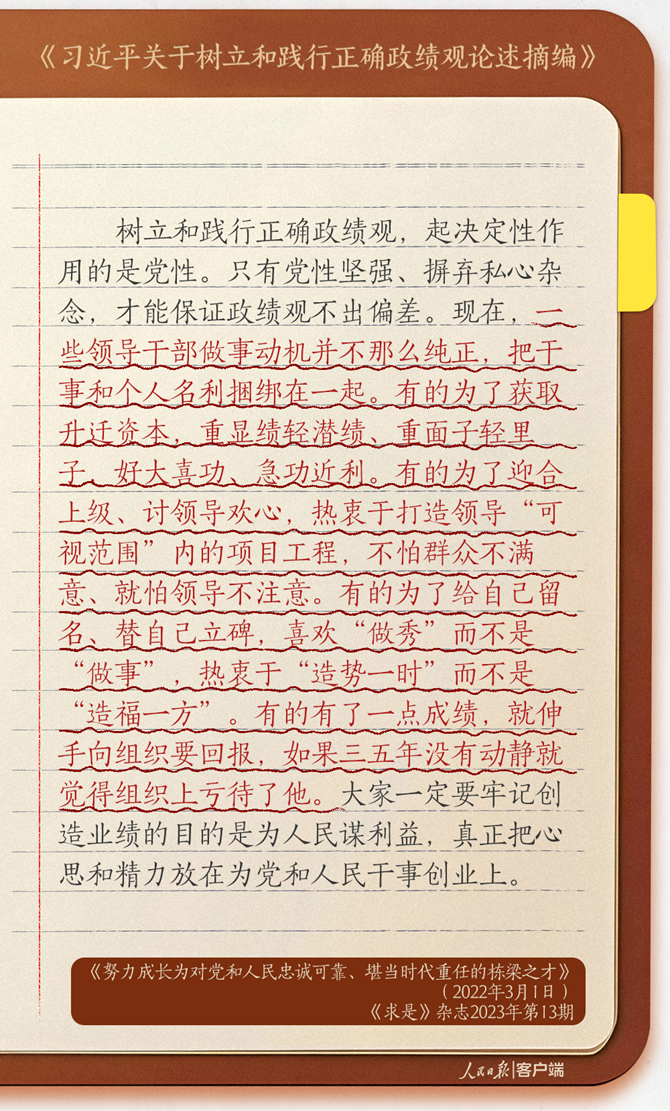 《习近平关于树立和践行正确政绩观论述摘编》
树立和践行正确政绩观，起决定性作
用的是党性。只有党性坚强、摒弃私心杂
念，才能保证政绩观不出偏差。现在，一
些领导干部做事动机并不那么纯正，把干
事和个人名利捆绑在一起。有的为了获取
升迁资本，重显绩轻潜绩、重面子轻里
子，好大喜功、急功近利。有的为了迎合
上级、讨领导欢心，热衷于打造领导“可
视范围”内的项目工程，不怕群众不满
意、就怕领导不注意。有的为了给自己留
名、替自己立碑，喜欢“做秀”而不是
“做事”，热衷于“造势一时”而不是
“造福一方”。有的有了一点成绩，就伸
手向组织要回报，如果三五年没有动静就
觉得组织上亏待了他。大家一定要牢记创
造业绩的目的是为人民谋利益，真正把心
思和精力放在为党和人民干事创业上。
《努力成长为对党和人民忠诚可靠、堪当时代重任的栋梁之才》
（2022年3月1日）
《求是》杂志2023年第13期
人民日报|客户端